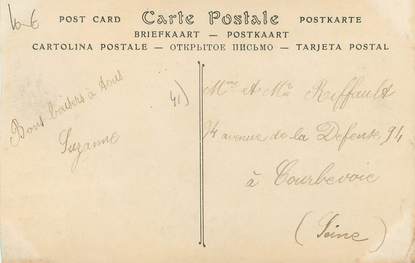 POST CARD Carte Postale POSTKARTE
BRIEFKAART — POSTKAART
CARTOLINA POSTALE — ОТКРЫТОЕ ПИСЬМО — TARJETA POSTAL
Bons baisers à tous
Suzanne
41)
Mme & Mr Riffault
74 avenue de la Défense, 94
à Courbevoie
(Seine)